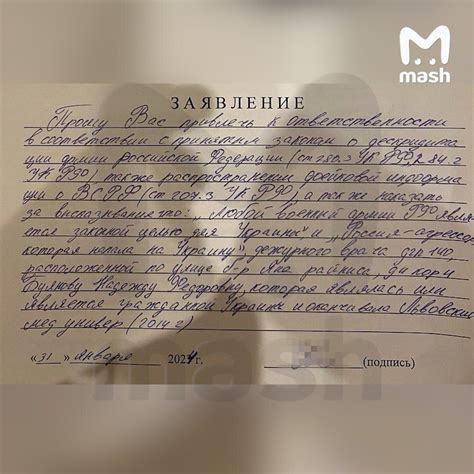 mash
ЗАЯВЛЕНИЕ
Прошу Вас привлечь к ответственности
в соответствии с принятым законом о дескридита
ции армии Российской Федерации (ст 280.3 УК РФ
УК РФ) также распространении фейковой информа
ции о ВСРФ (ст 207.3 УК РФ), а также наказать
за высказывание что: „Любой военный армии РФ явля
ется законной целью для Украины" и „Россия-агрессор
которая напала на Украину" дежурного врача
расположенной по улице б-р Яна райниса,
Буянову Надежду Федоровну, которая являлась или
является гражданкой Украины и оканчивала Львовский
мед универ (2014 г)
mash
«31» января 2024 г.
(подпись)